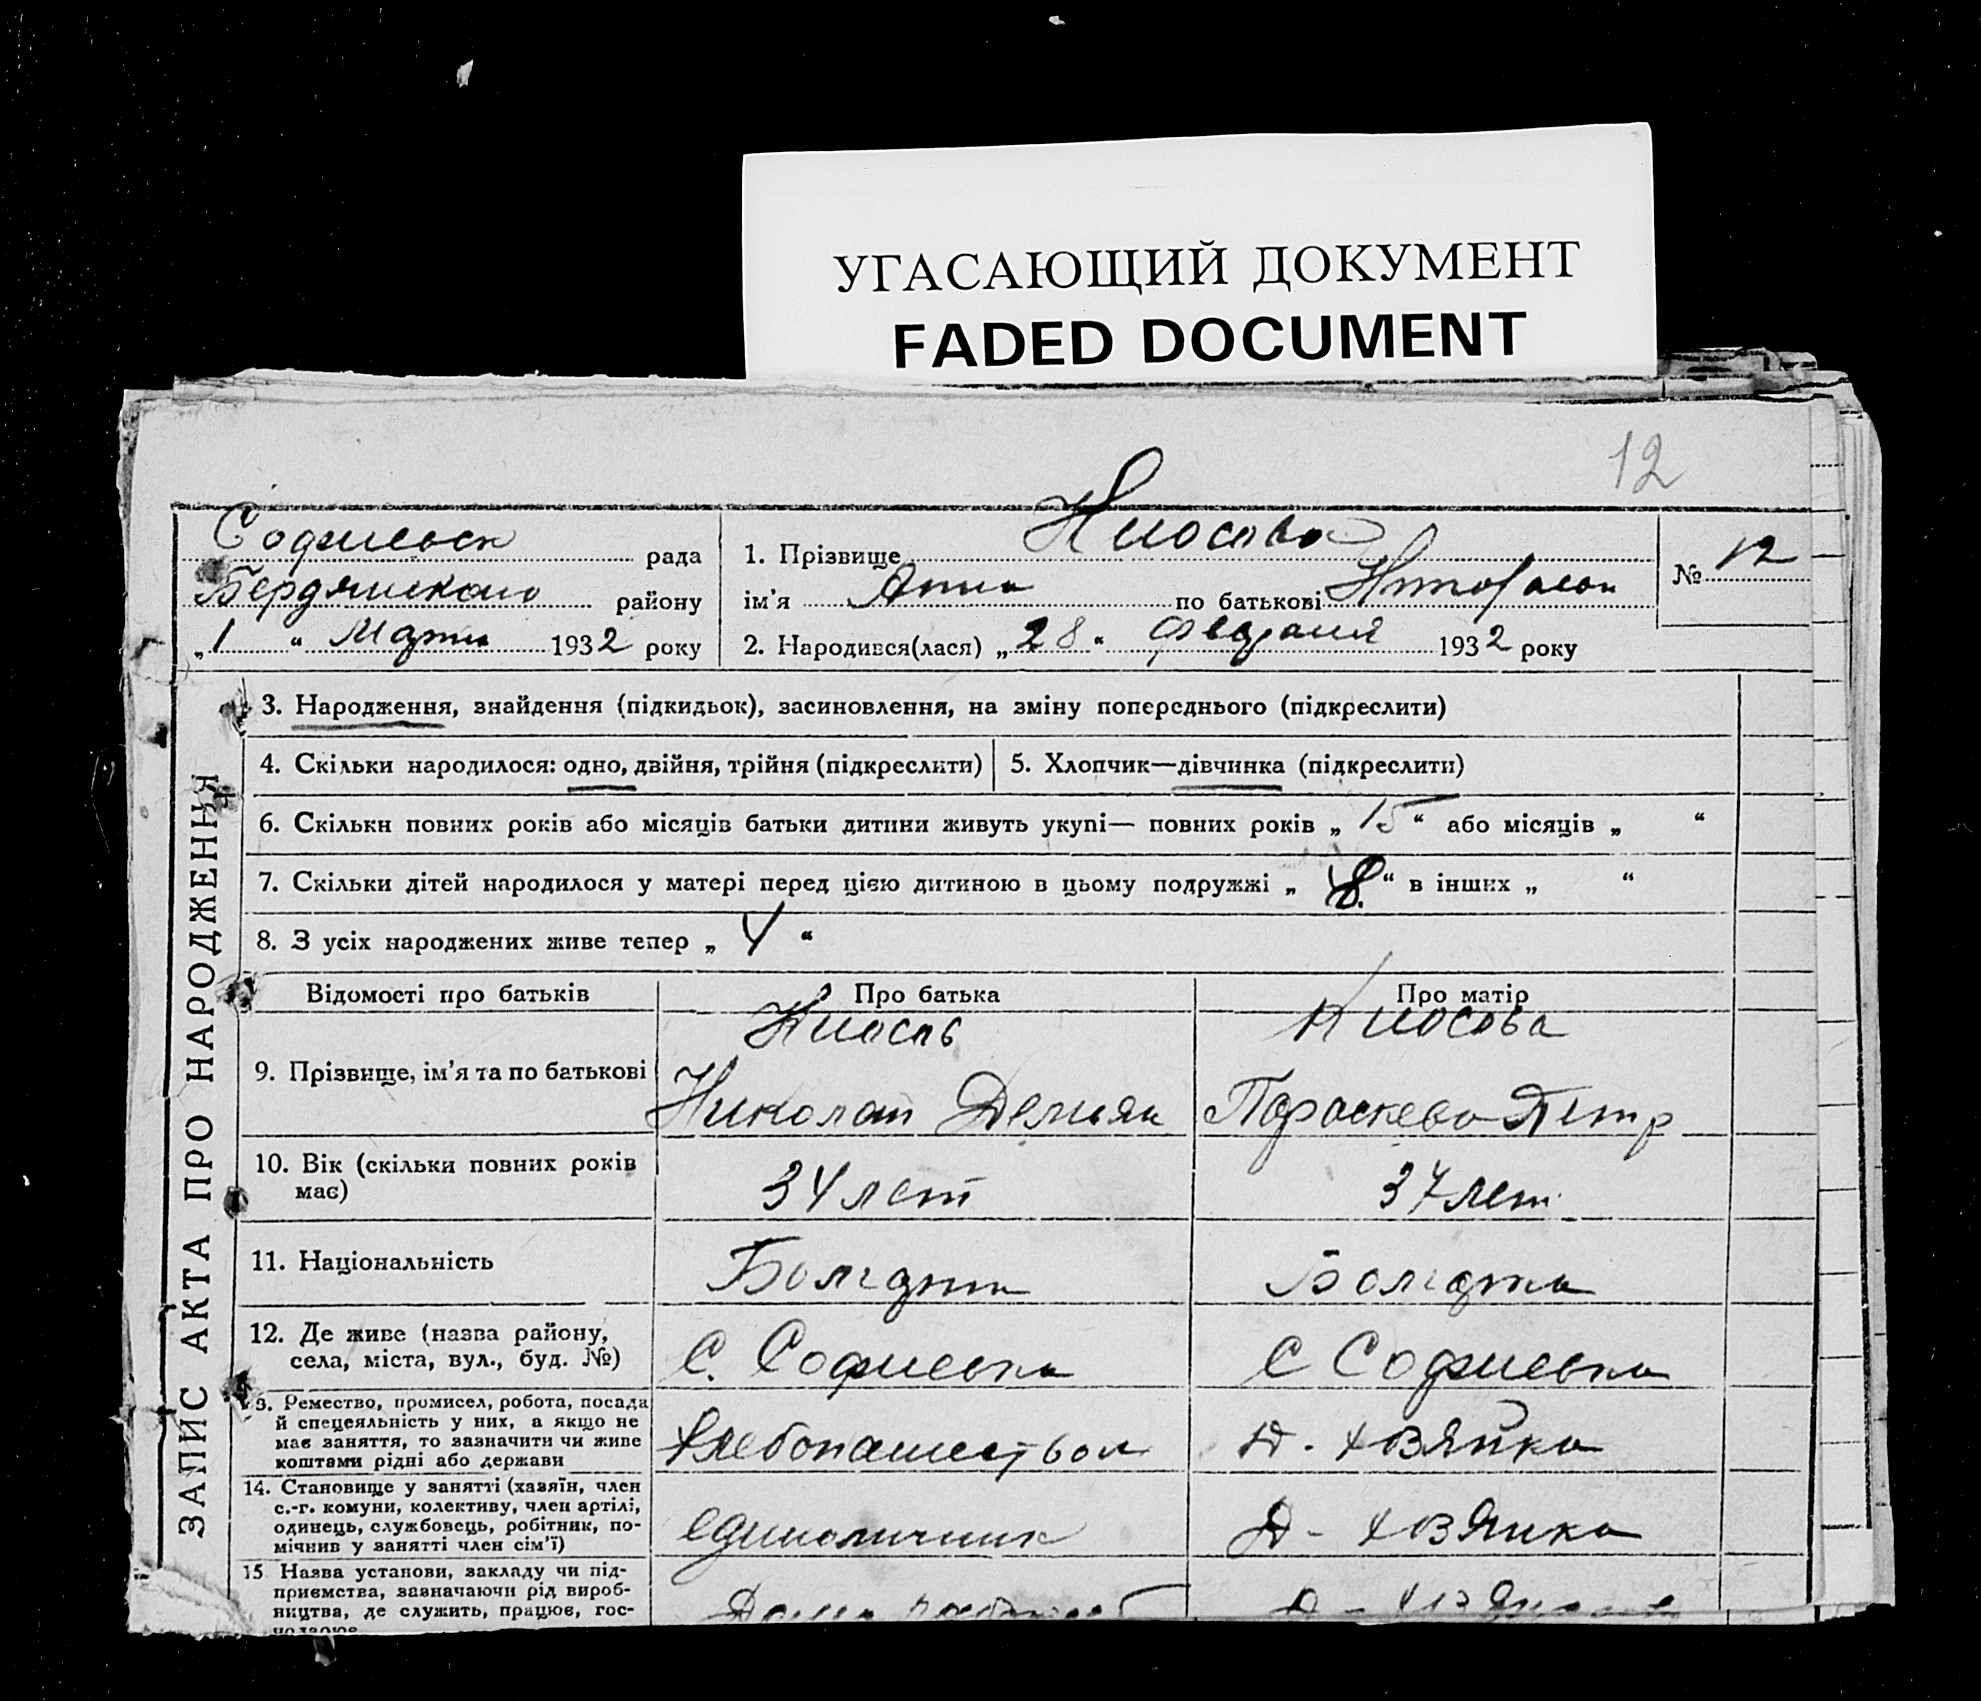 УГАСАЮЩИЙ ДОКУМЕНТ
FADED DOCUMENT
12
Софиевск рада
Бердянскаго району
„1“ Марта 1932 року
1. Прізвище Киосова
ім'я Анна по батькові Николаев
2. Народився(лася) „28“ Февраля 1932 року
№ 12
ЗАПИС АКТА ПРО НАРОДЖЕННЯ
3. Народження, знайдення (підкидьок), засиновлення, на зміну попереднього (підкреслити)
4. Скільки народилося: одно, двійня, трійня (підкреслити)
5. Хлопчик—дівчинка (підкреслити)
6. Скільки повних років або місяців батьки дитини живуть укупі— повних років „15“ або місяців „ “
7. Скільки дітей народилося у матері перед цією дитиною в цьому подружжі „8.“ в інших „ “
8. З усіх народжених живе тепер „4“
Відомості про батьків Про батька Про матір
9. Прізвище, ім'я та по батькові
Киосов
Николай Демьян
Киосова
Параскева Петр
10. Вік (скільки повних років
має)
34 лет
37 лет
11. Національність
Болгарин
Болгарка
12. Де живе (назва району,
села, міста, вул., буд. №)
С. Софиевка
С Софиевка
3. Ремество, промисел, робота, посада
й спецеяльність у них, а якщо не
має заняття, то зазначити чи живе
коштами рідні або держави
Хлебопашеством
Д. хозяйка
14. Становище у занятті (хазяїн, член
с.-г. комуни, колективу, член артілі,
одинець, службовець, робітник, по-
мічнив у занятті член сім'ї)
единоличник
Д - хозяйка
15. Назва установи, закладу чи під-
приємства, зазначаючи рід вироб-
ництва, де служить, працює, гос-